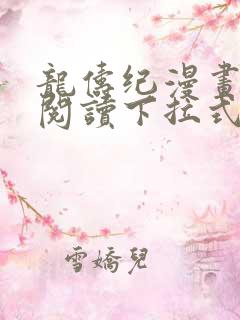 龍儔纪漫畫
閱讀下拉式
雪嬌兒